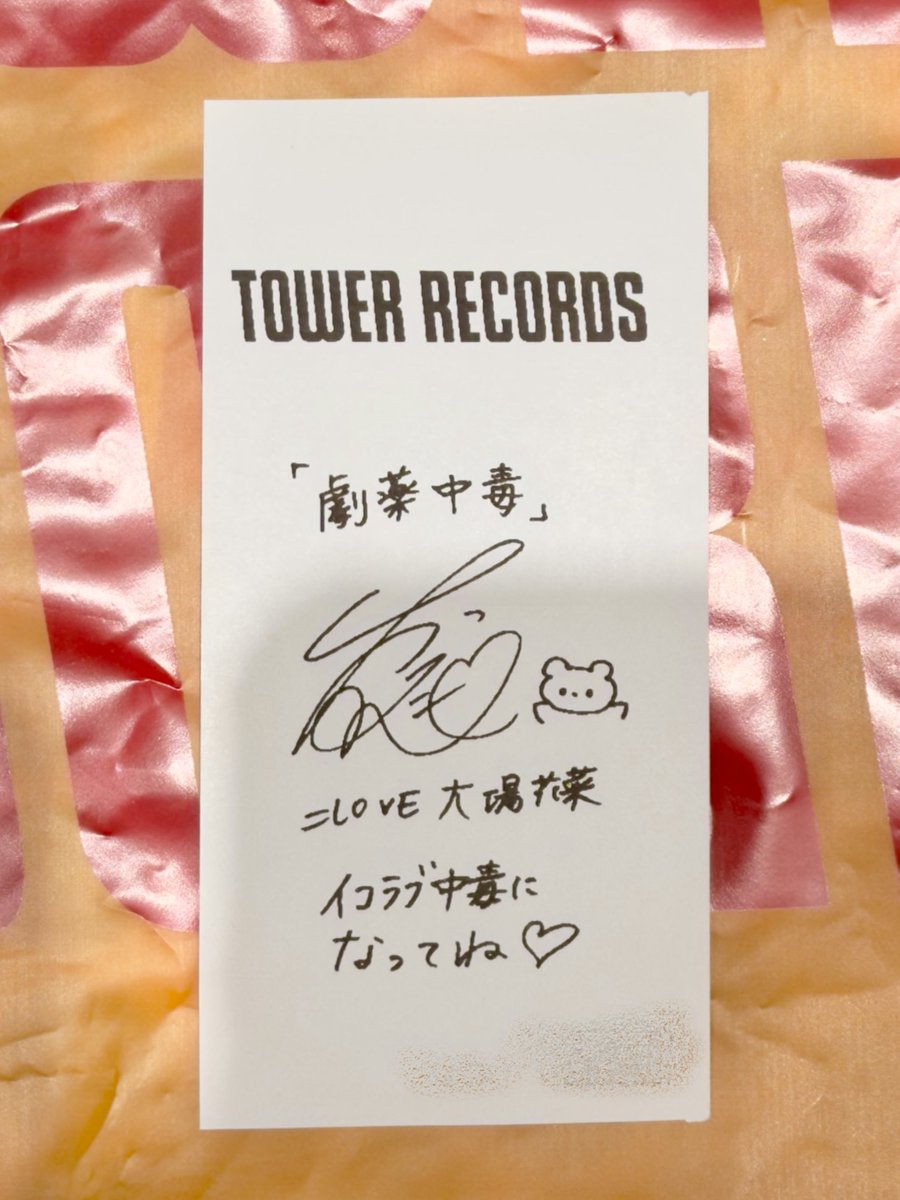 TOWER RECORDS
「劇薬中毒」
=LOVE 大場花菜
イコラブ中毒に
なってね♡